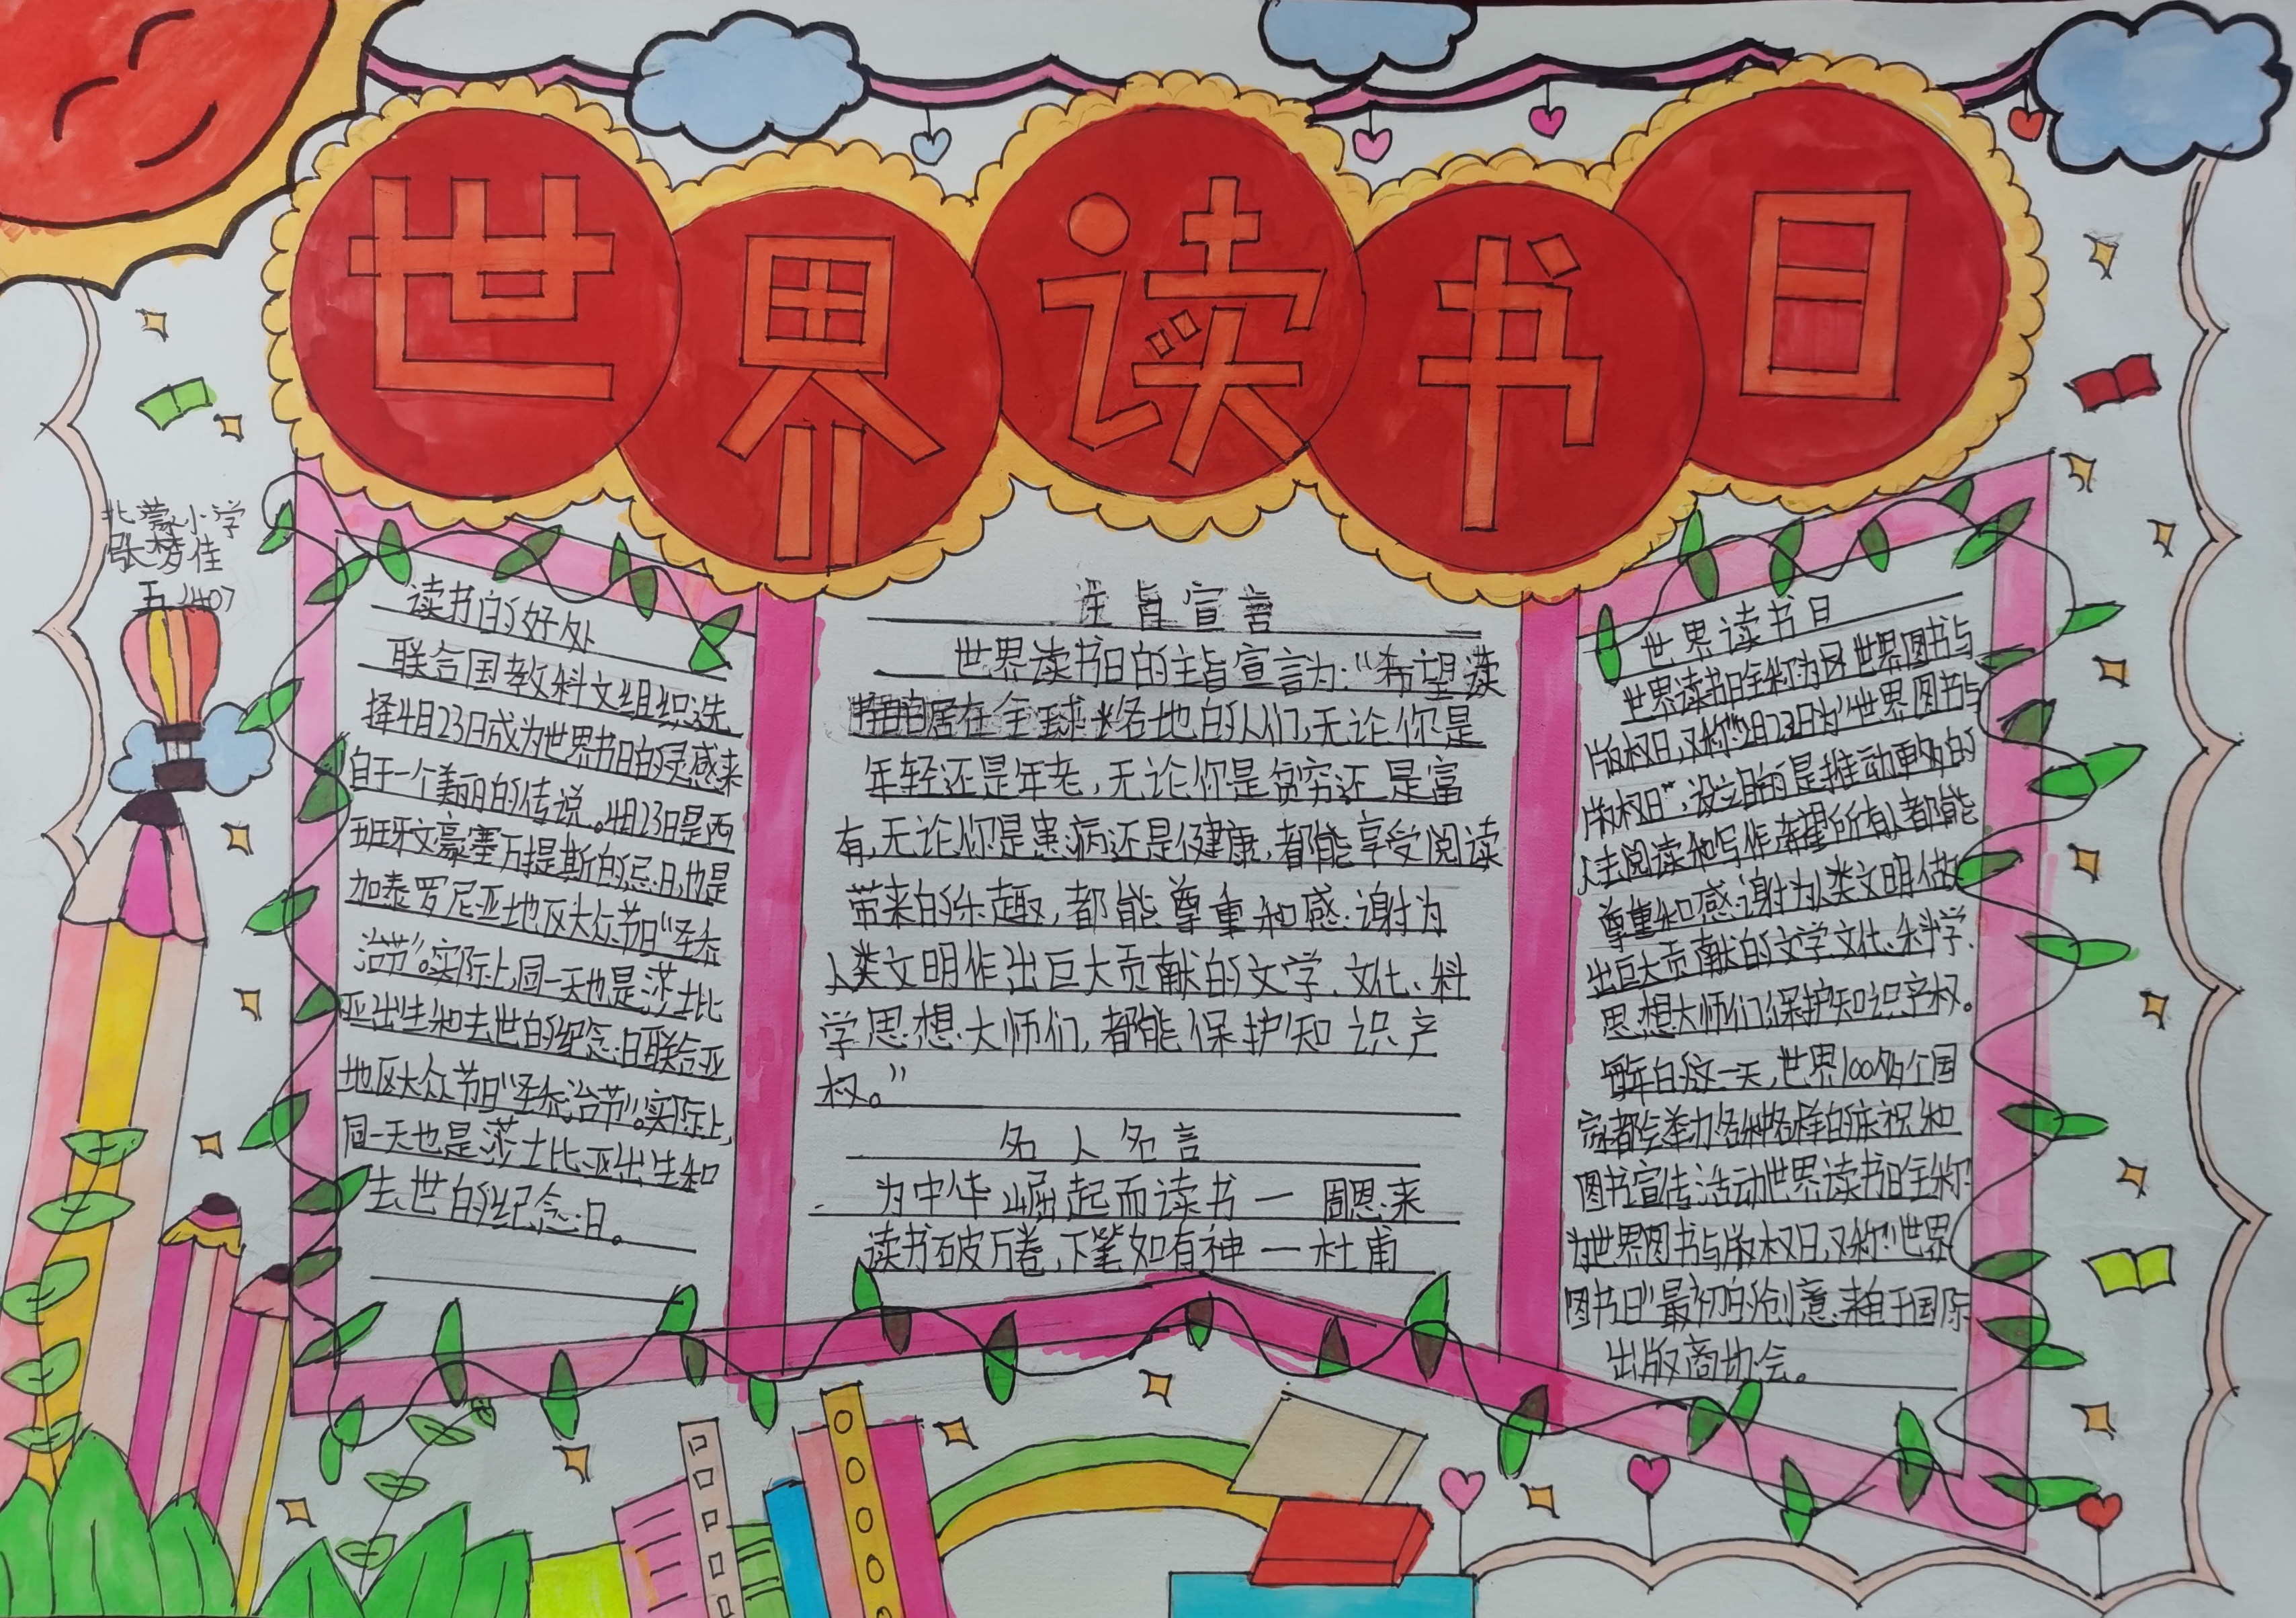 世界读书日
北藁小学
张梦佳
读书的好处
联合国教科文组织选
择4月23日成为世界书日的灵感来
自于一个美丽的传说。4月23日是西
班牙文豪塞万提斯的忌日,也是
加泰罗尼亚地区大众节日“圣乔
治节”。实际上,同一天也是莎士比
亚出生和去世的纪念日联合亚
地区大众节日“圣乔治节”。实际上,
同一天也是莎士比亚出生和
去世的纪念日。
主旨宣言
世界读书日的主旨宣言为:“希望读
居在全球各地的人们,无论你是
年轻还是年老,无论你是贫穷还是富
有,无论你是患病还是健康,都能享受阅读
带来的乐趣,都能尊重和感谢为
人类文明作出巨大贡献的文学、文化、科
学思想大师们,都能保护知识产
权。”
名人名言
为中华崛起而读书一周恩来
读书破万卷,下笔如有神一杜甫
世界读书日
世界读书日全称为世界图书与
版权日,又称“月23日为“世界图书与
版权日”,设立目的是推动更多的
人去阅读和写作希望所有人都能
尊重和感谢为人类文明做
出巨大贡献的文学文化、科学、
思想大师们,保护知识产权。
每年的这一天,世界100多个国
家都会举办各种各样的庆祝和
图书宣传活动世界读书日全称
为世界图书与版权日,又称“世界
图书日”最初的创意来自于国际
出版商协会。